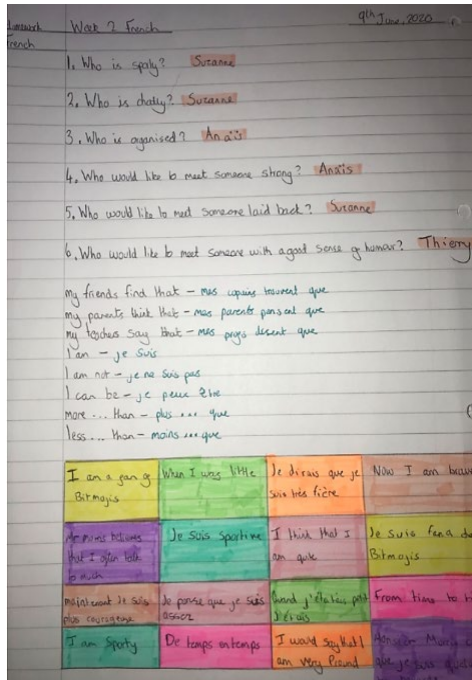 Homework
French
Week 2 French
9th June, 2020
1. Who is sporty? Suzanne
2. Who is chatty? Suzanne
3. Who is organised? Anaïs
4. Who would like to meet someone strong? Anaïs
5. Who would like to meet someone laid back? Suzanne
6. Who would like to meet someone with a good sense of humour? Thierry
my friends find that – mes copains trouvent que
my parents think that – mes parents pensent que
my teachers say that – mes profs disent que
I am – je suis
I am not – je ne suis pas
I can be – je peux être
more ... than – plus ... que
less ... than – moins ... que
I am a fan of Bitmojis
When I was little
Je dirais que je suis très fière
Now I am
that I often talk to much
Je suis sportive
I think that I am quite
Je suis fana de Bitmojis
maintenant Je suis plus courageuse
Je pense que je suis assez
Quand j'étais petit j'étais
From time to
I am Sporty
De temps en temps
I would say that I am very Proud
que je suis